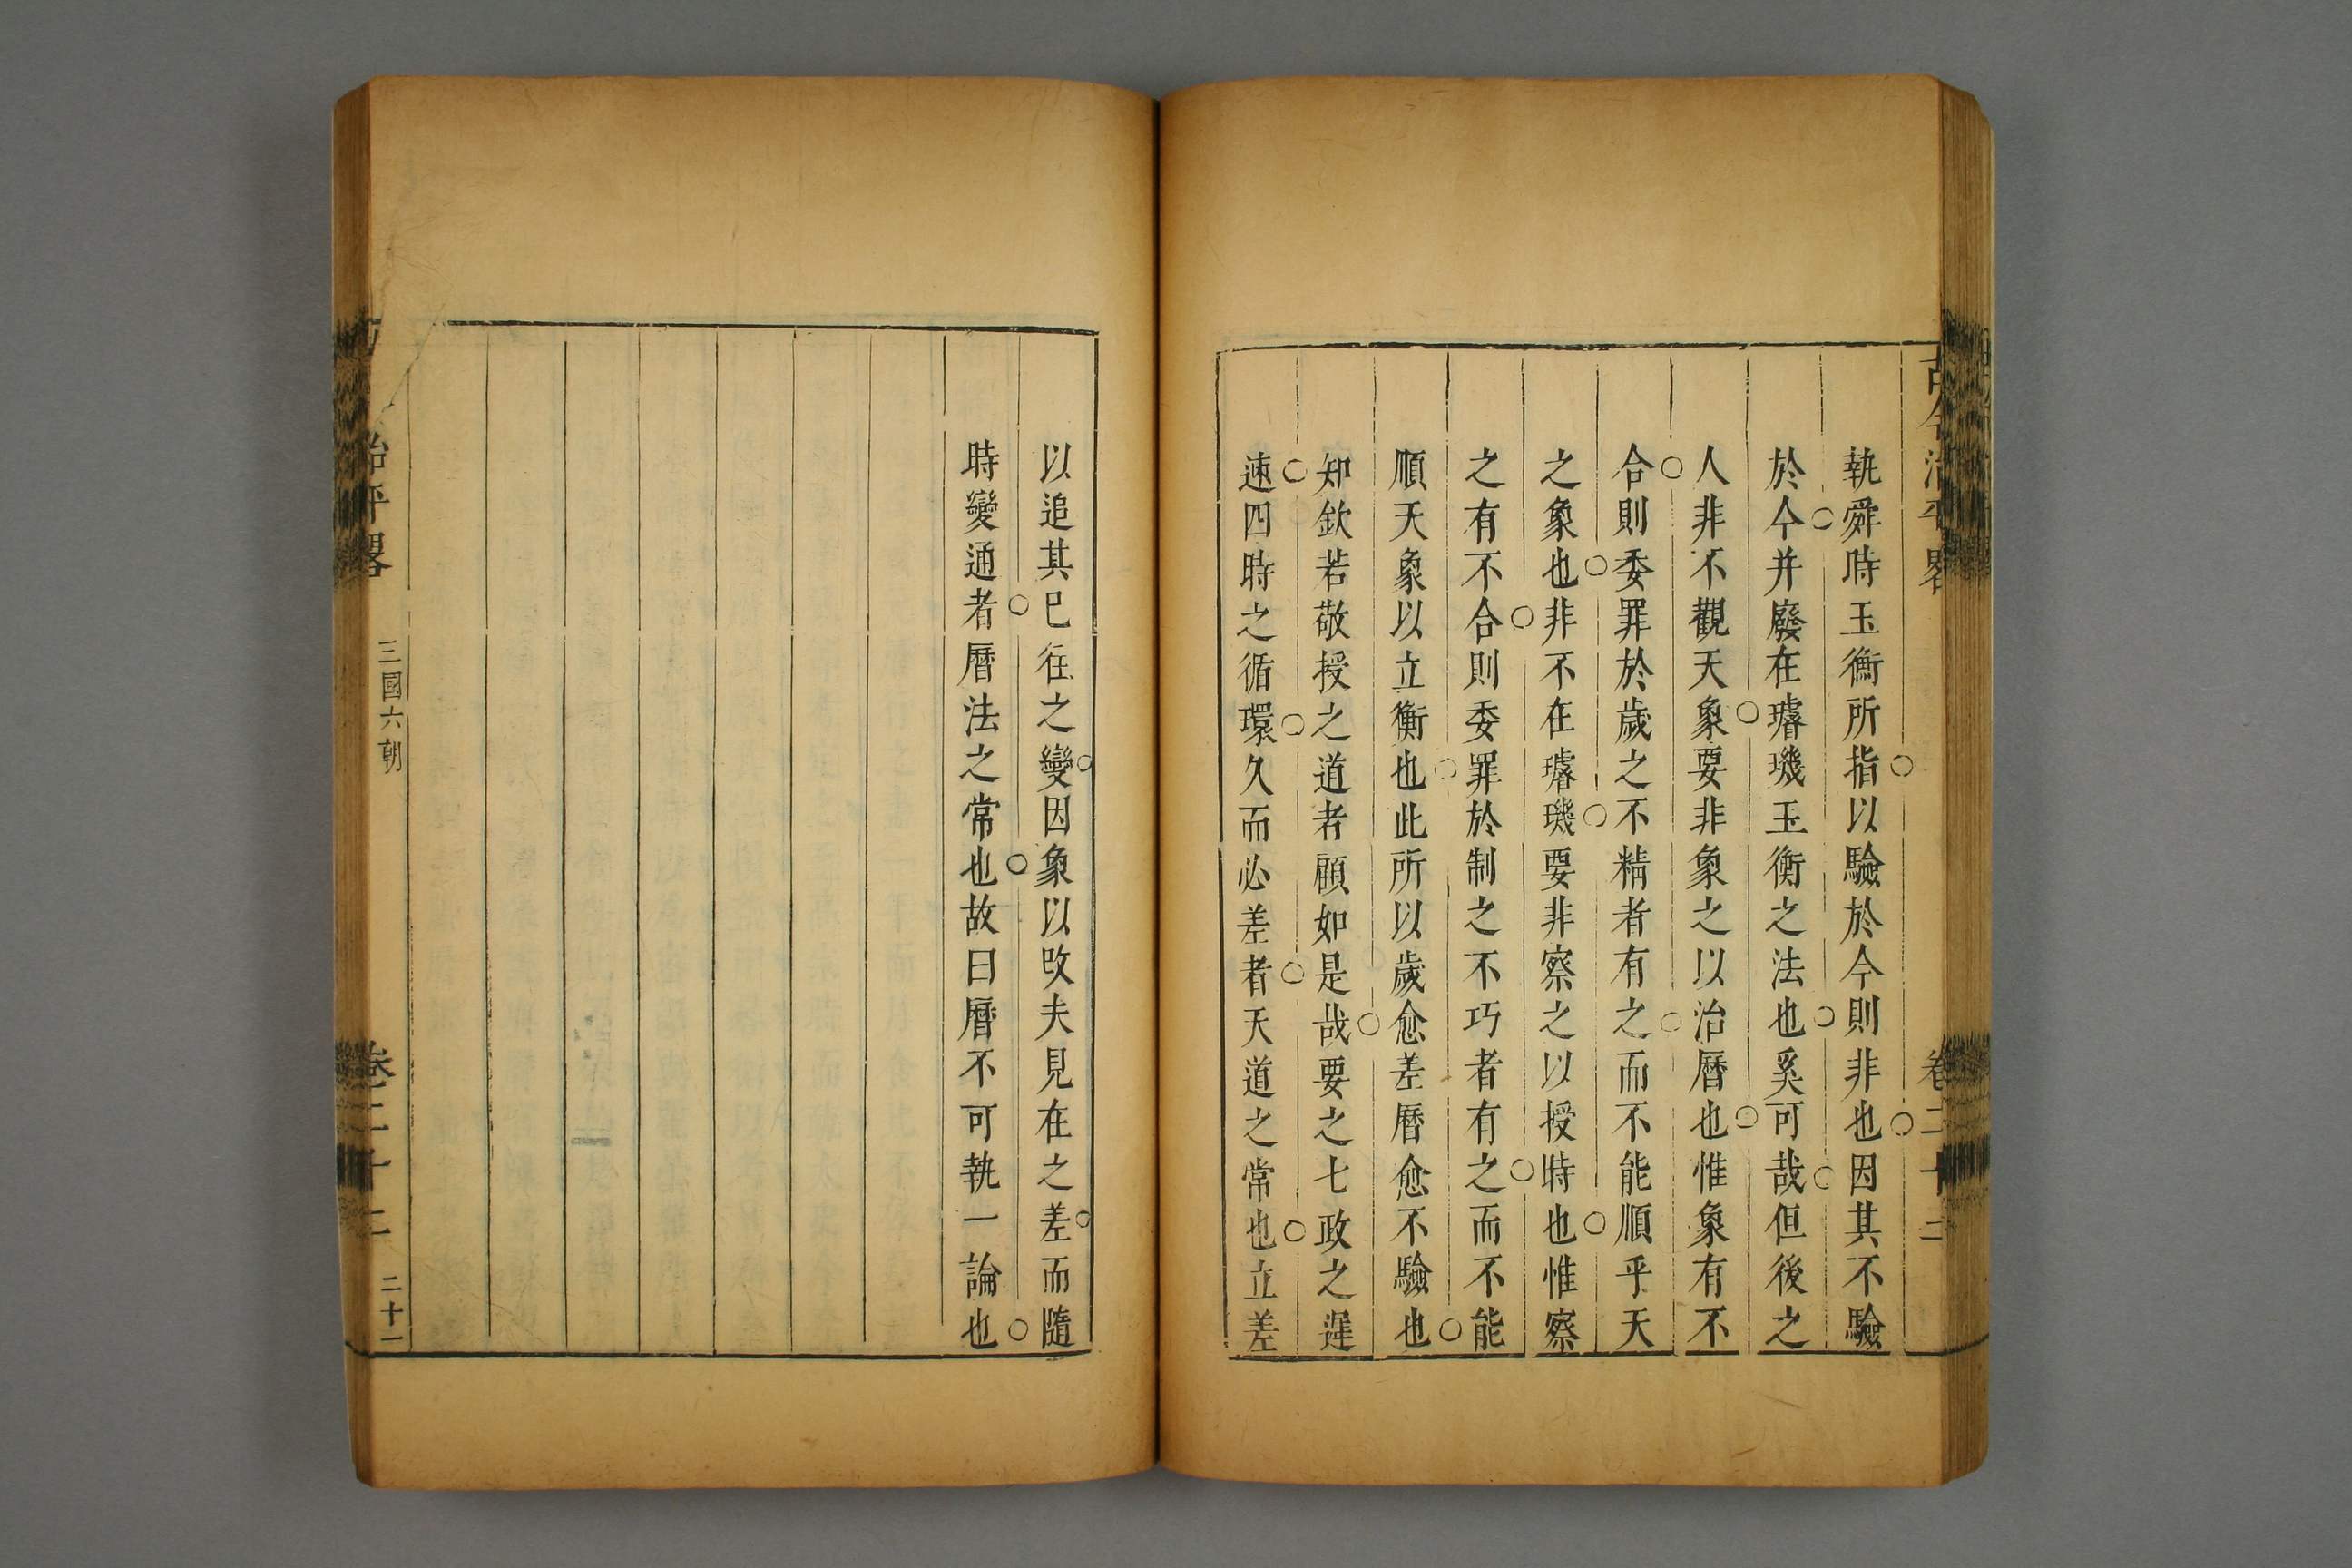 古今治平畧
卷二十二
執舜時玉衡所指以驗於今則非也因其不驗
於今并廢在璿璣玉衡之法也奚可哉但後之
人非不觀天象要非象之以治曆也惟象有不
合則委罪於歲之不精者有之而不能順乎天
之象也非不在璿璣要非察之以授時也惟察
之有不合則委罪於制之不巧者有之而不能
順天象以立衡也此所以歲愈差曆愈不驗也
知欽若敬授之道者顧如是哉要之七政之遲
速四時之循環久而必差者天道之常也立差
以追其巳往之變因象以攺夫見在之差而隨
時變通者曆法之常也故曰曆不可執一論也
治平畧
三國六朝
卷二十二
二十一